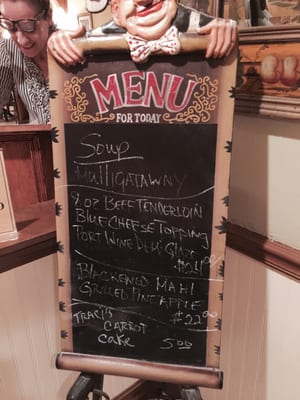 MENU
FOR TODAY
Soup
MULLIGATAWNY
8 OZ BEEF TENDERLOIN
BLUE CHEESE TOPPING
PORT WINE DEMI GLAZE
$24.00
BLACKENED MAHI
GRILLED PINEAPPLE
$22.00
TRACY'S
CARROT
CAKE 5.00